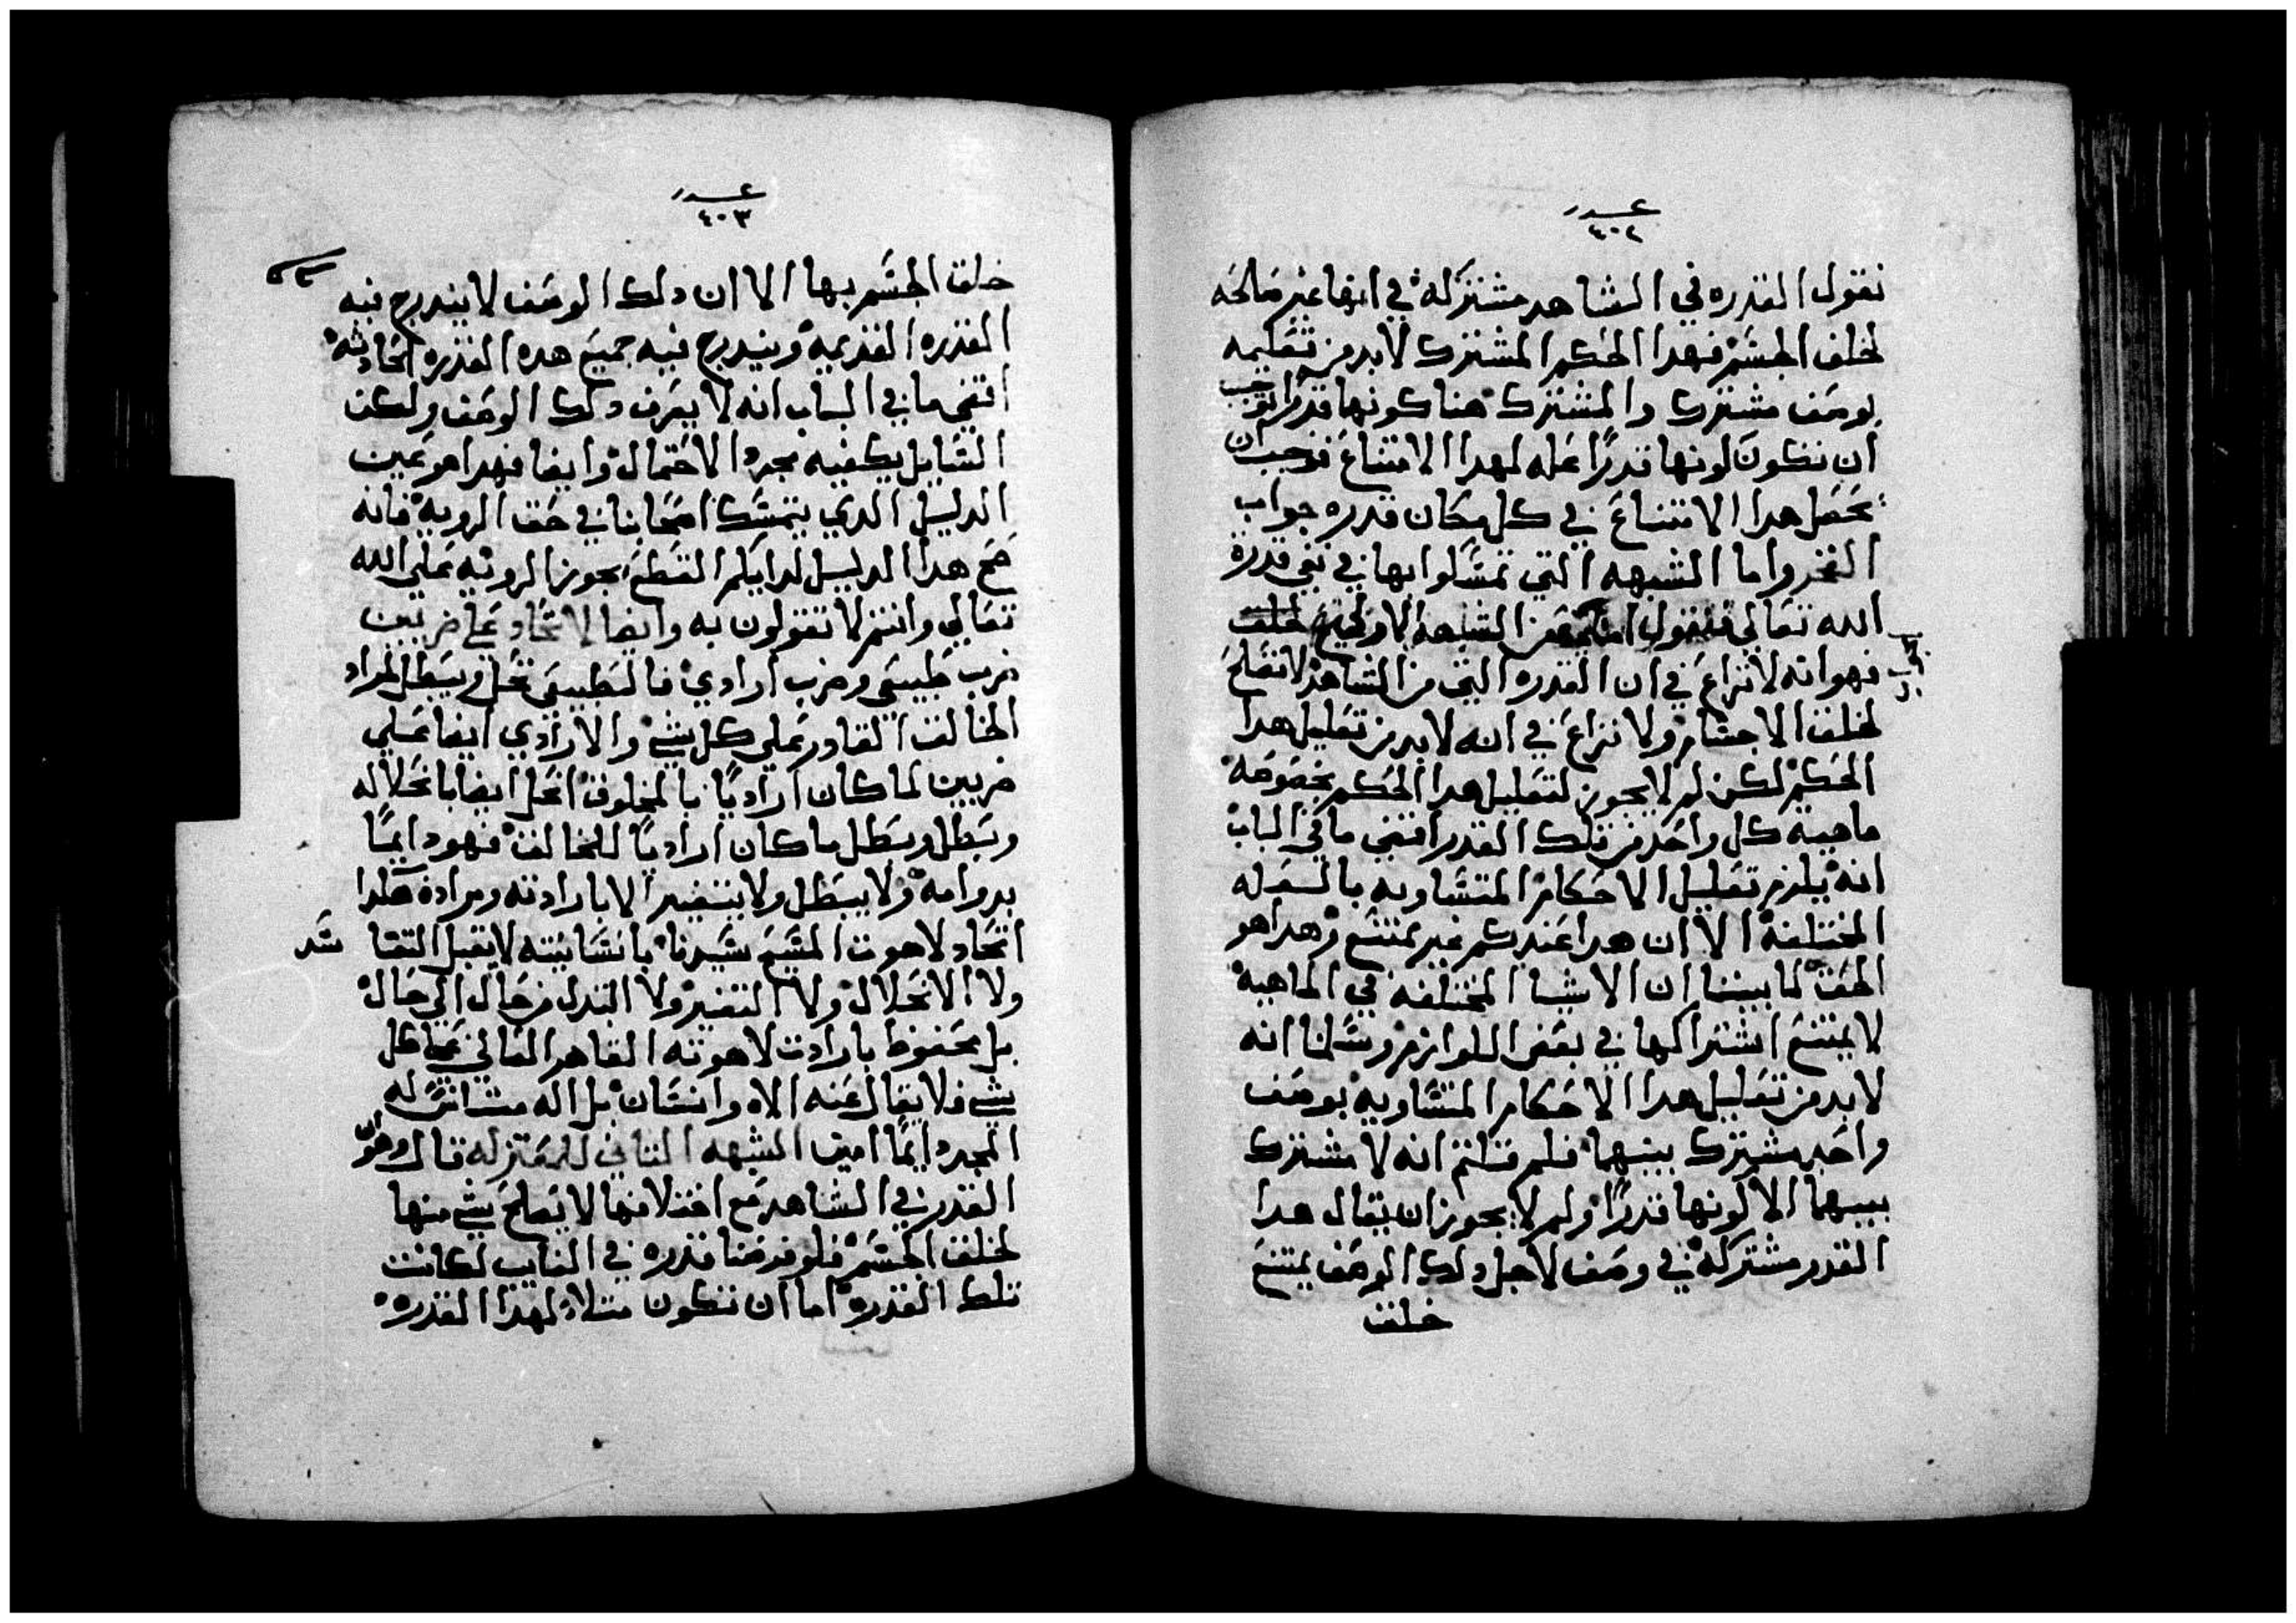 عدد
٤٠٢
نقول القدره في الشاهد مشتركة في انها غير صالحه
لخلق الجسم فهدا الحكم المشترك لابد من تعليله
بوصف مشترك والمشترك هنا كونها قدرًا توجب
ان تكون لونها قدرًا عله لهدا الامتناع فوجب ان
يحصل هدا الامتناع في كل مكان قدره جواب
الفخر واما الشبهه التي تمسكوا بها في نفي قدرة
الله تعالي فنقول اما الشبهة الاولي لخلق
فهوانه لا نزاع في ان القدره التي من الشاهد لا تصلح
لخلق الاجسام ولا نزاع في انه لابد من تعليل هدا
الحكم لكن لم لا يجوز لتعليل هدا الحكم بخصوصة
ماهية كل واحد من تلك القدر اقتضي ما في الباب
انه يلزم تعليل الاحكام المتساويه بالعله
المختلفة الا ان هدا عندكم غير ممتنع وهدا هو
الحق لما بيننا ان الاشيا المختلفه في الماهية
لا يمتنع اشتراكها في بعض اللوازم وسلمنا انه
لابد من تعليل هدا الاحكام المتساويه بوصف
واحد مشترك بينهما فلم قلتم انه لا مشترك
بينهما الا كونها قدرًا ولم لا يجوز ان يقال هدا
القدر مشتركة في وصف لاجل دلك الوصف يمتنع
خلق
عدد
٤٠٣
خلق الجسم بها الا ان دلك الوصف لا يندرج فيه
القدره القديمه ويندرج فيه جميع هده القدره الحادثه
اقتضي ما في الباب انه لا يعرف دلك الوصف ولكن
السايل يكفيه مجرد الاحتمال وايضا فهدا هو عين
الدليل الدي يتمسك اصحابنا في حق الرويه فانه
صح هدا الدليل لدايكم القطع بجوز الرويه علي الله
تعالي وانتم لا تقولون به وايضا الاتحاد علي ضربين
ضرب طبيعي وضرب ارادي فالطبيعي يحل ويبطل لمراد
الخالق القادر علي كل شي والارادي ايضا علي
ضربين لما كان اراديًا بالمخلوق انحل ايضا بانحلاله
وبطل وبطل ما كان اراديًا للخالق فهو دايمًا
بدوامه ولا يبطل ولا يتغير الا بارادته ومراده هكدا
اتحاد لاهوت المسيح سيدنا بانسانيته لا يقبل الفسا
ولا الانحلال ولا التغير ولا التبدل من حال الي حال
بل محفوظ بارادت لاهوته القاهر العالي علي كل
شي فلا يقال عنه الاه وانسان بل اله متانس له
المجد دايمًا امين الشبهه الثاني للمعتزله قال وهو
القدر في الشاهد مع اختلافها لا يصلح شي منها
لخلق الجسم فلو فرضنا قدره في الغايب لكانت
تلك القدره اما ان تكون مثلا لهدا القدره